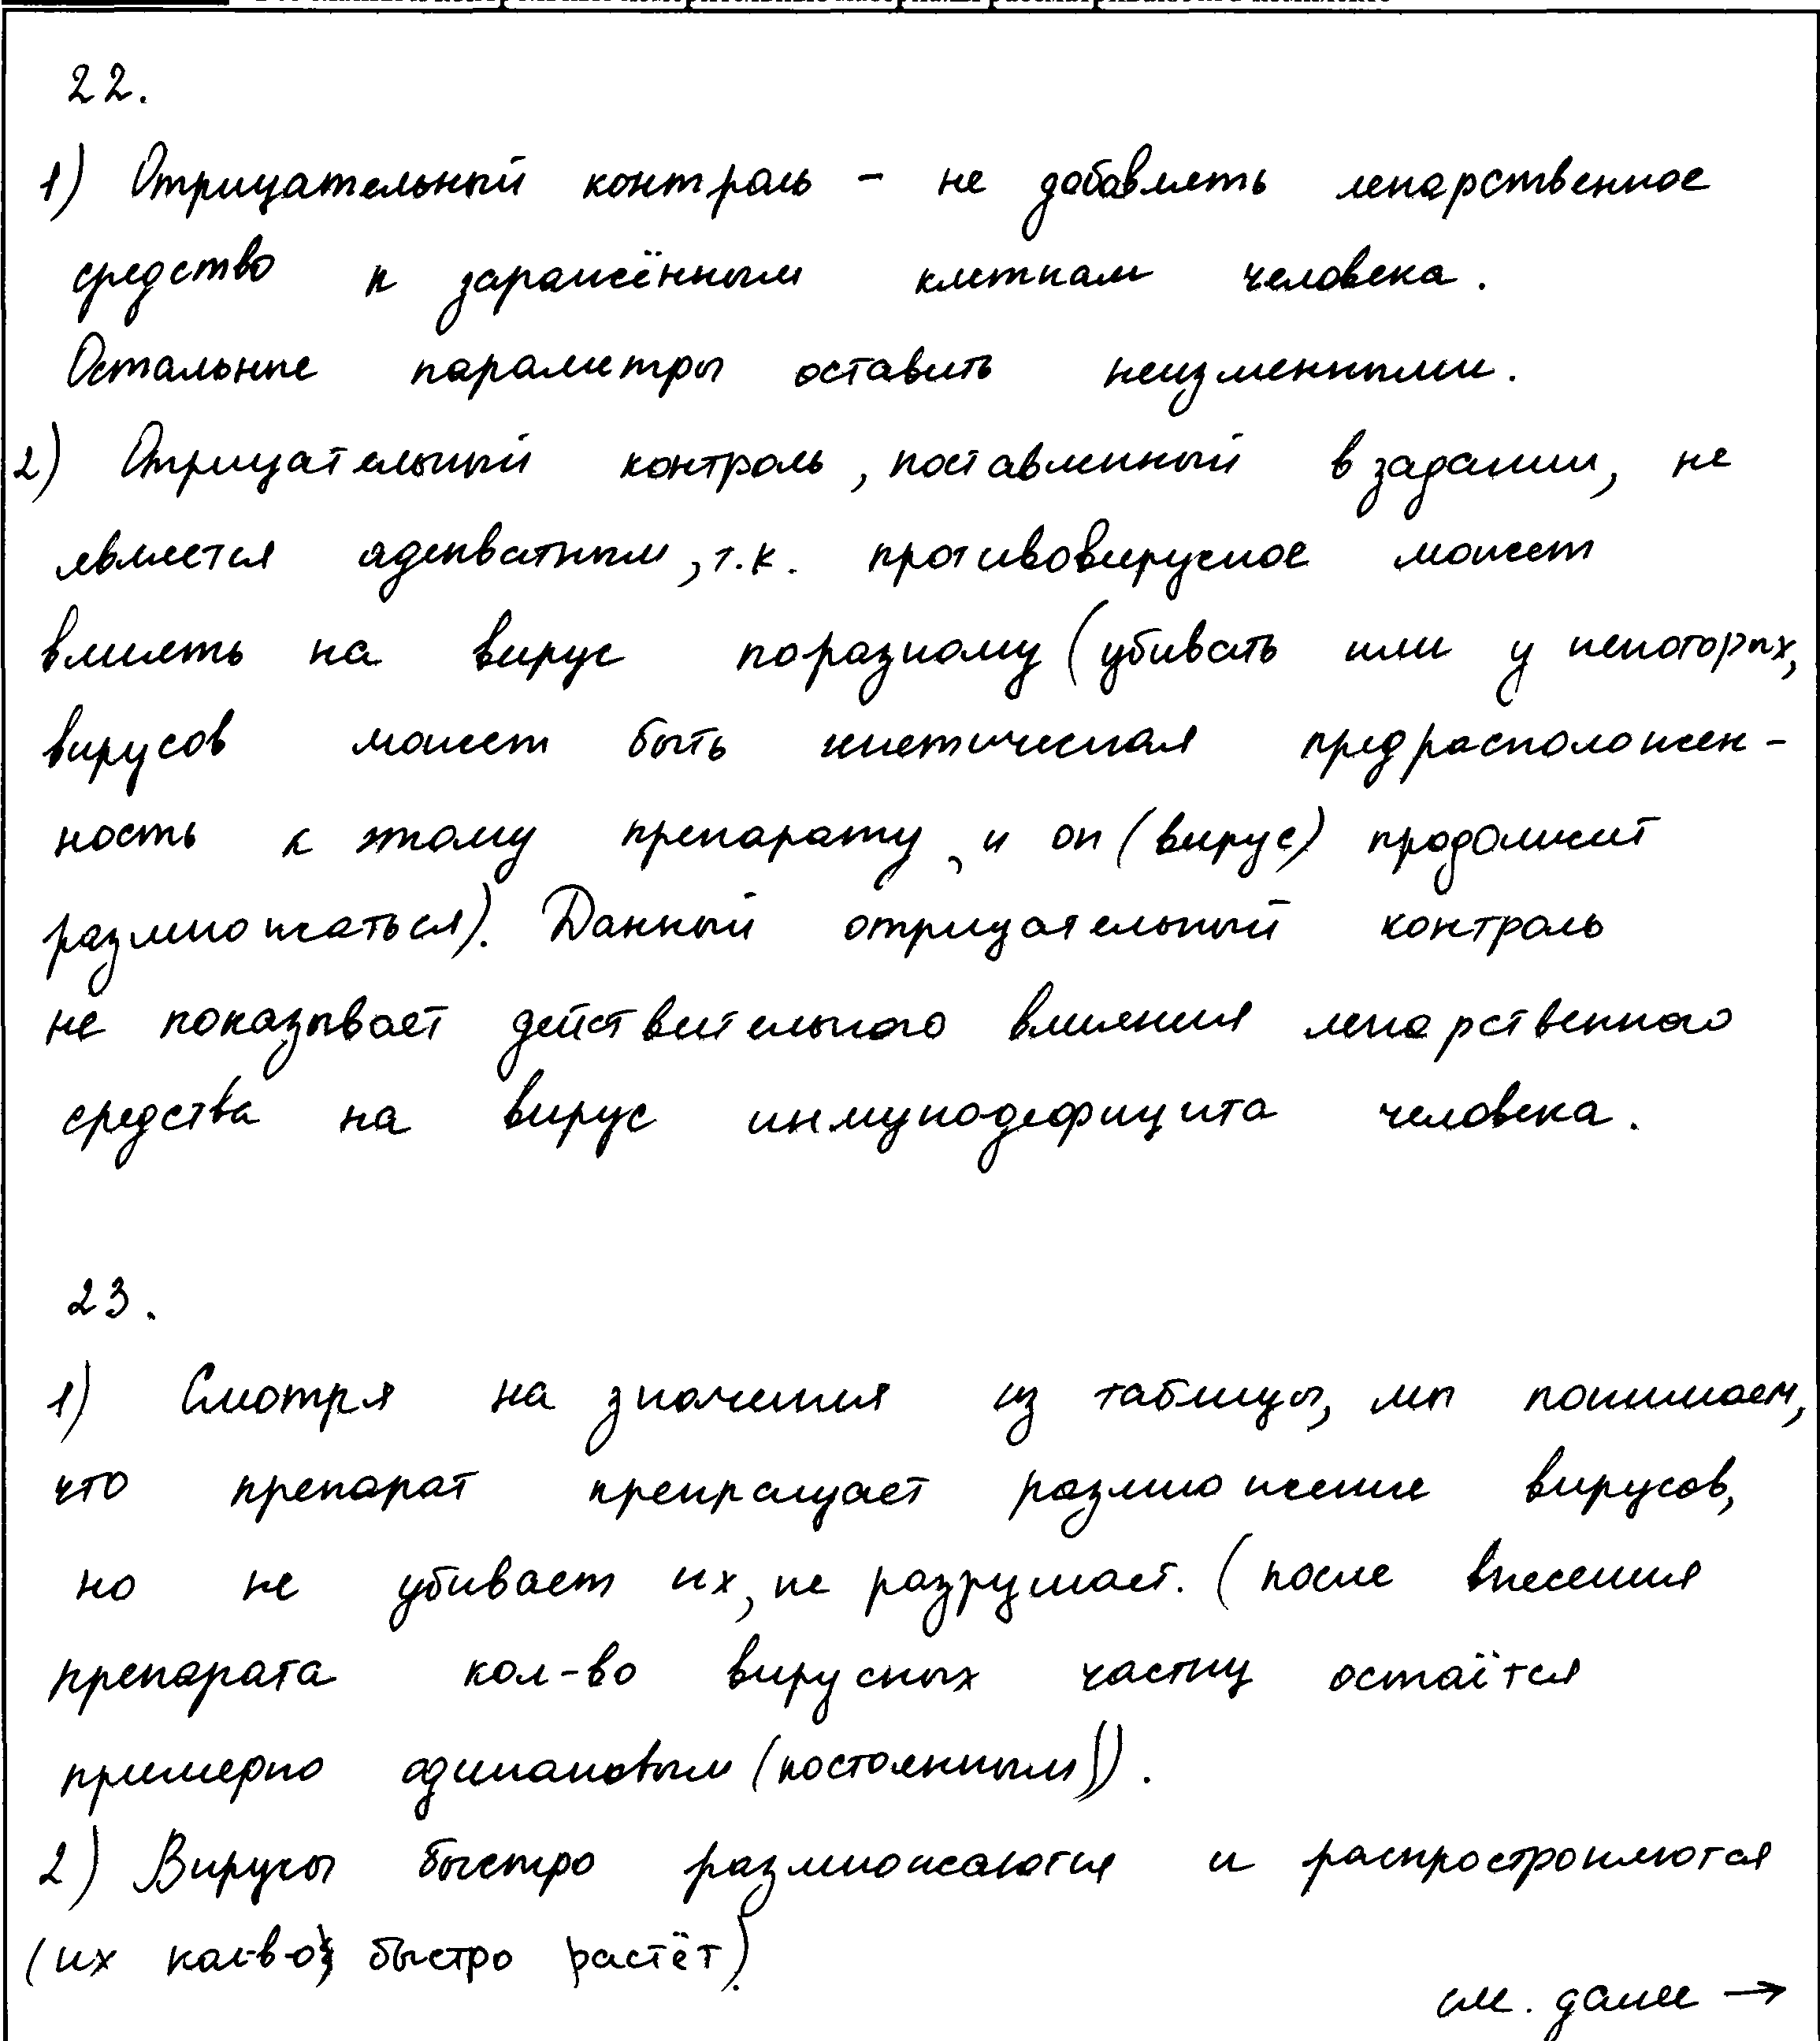 22.
1) Отрицательный контроль - не добавлять лекарственное
средство к заражённым клеткам человека.
Остальные параметры оставить неизменными.
2) Отрицательный контроль, поставленный в задании, не
является адекватным, т.к. противовирусное может
влиять на вирус поразному (убивать или у некоторых,
вирусов может быть генетическая предрасположен-
ность к этому препарату, и он (вирус) продолжит
размножаться). Данный отрицательный контроль
не показывает действительного влияния лекарственного
средства на вирус иммунодефицита человека.
23.
1) Смотря на значения из таблицы, мы понимаем,
что препарат прекращает размножение вирусов,
но не убивает их, не разрушает. (после внесения
препарата кол-во вирусных частиц остаётся
примерно одинаковым (постоянным)).
2) Вирусы быстро размножаются и распростроняются
(их кол-во быстро растёт).
см. далее →